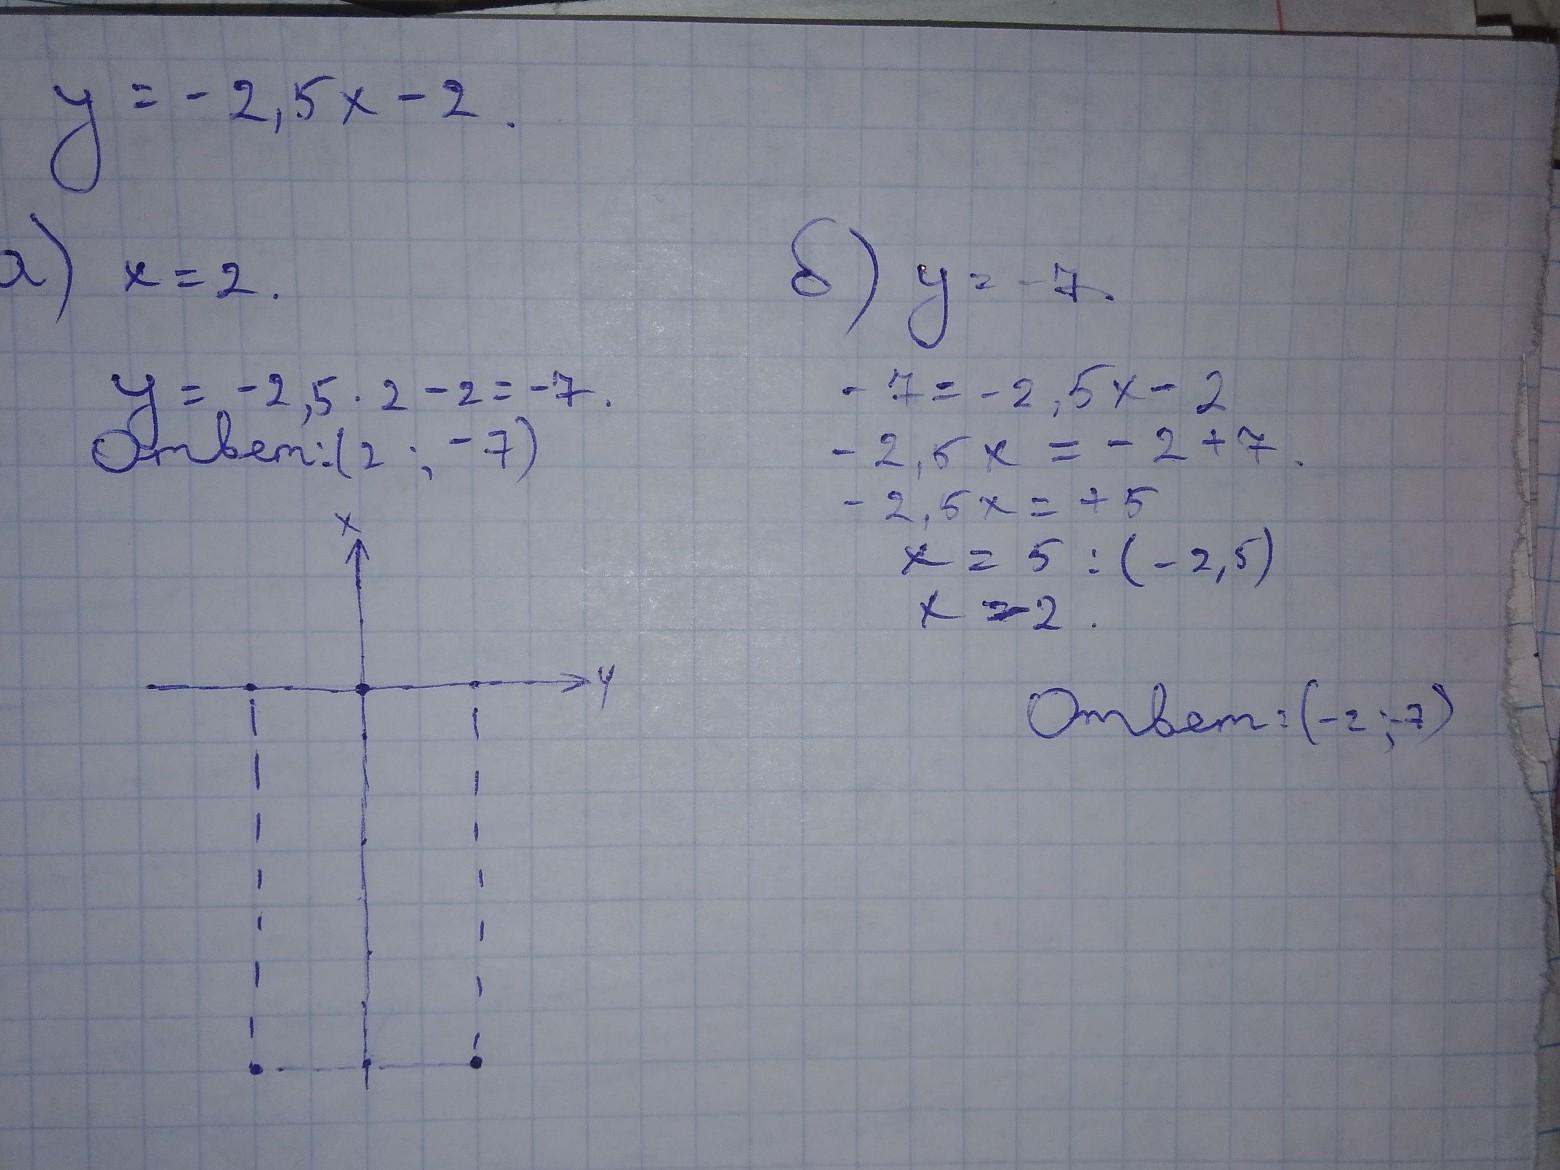 y = -2,5x - 2.
а) x = 2.
y = -2,5 · 2 - 2 = -7.
Ответ: (2 ; -7)
x
y
б) y = -7.
-7 = -2,5x - 2
-2,5x = -2 + 7.
-2,5x = +5
x = 5 : (-2,5)
x = -2.
Ответ: (-2 ; -7)